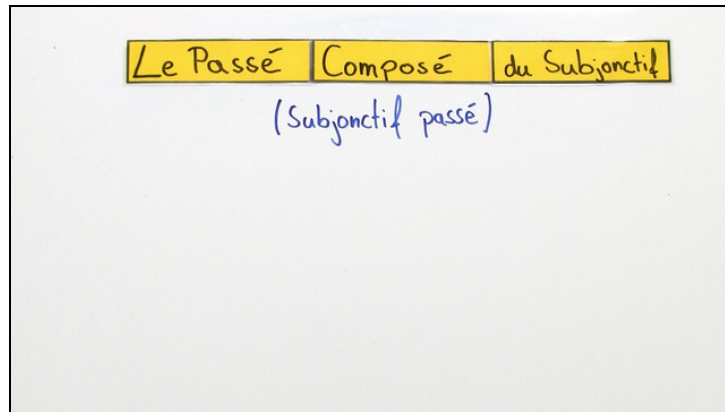 Le Passé Composé du Subjonctif
(Subjonctif passé)